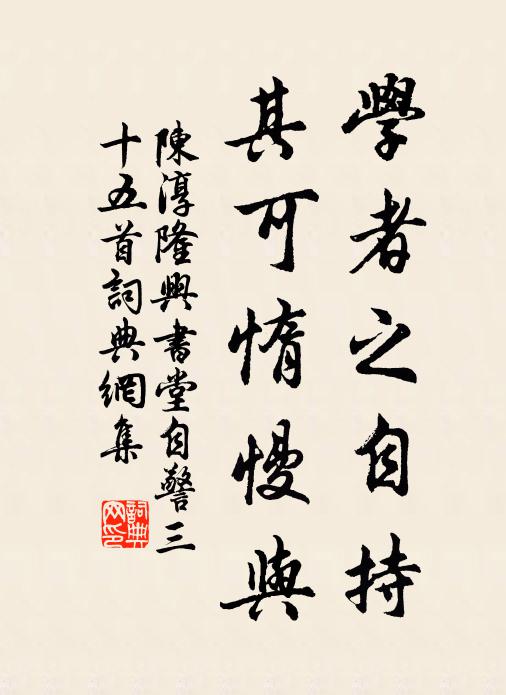 學者之自持
其可惰慢與
陳淳隆興書堂自警三
十五首詞典網集
詞典
网印